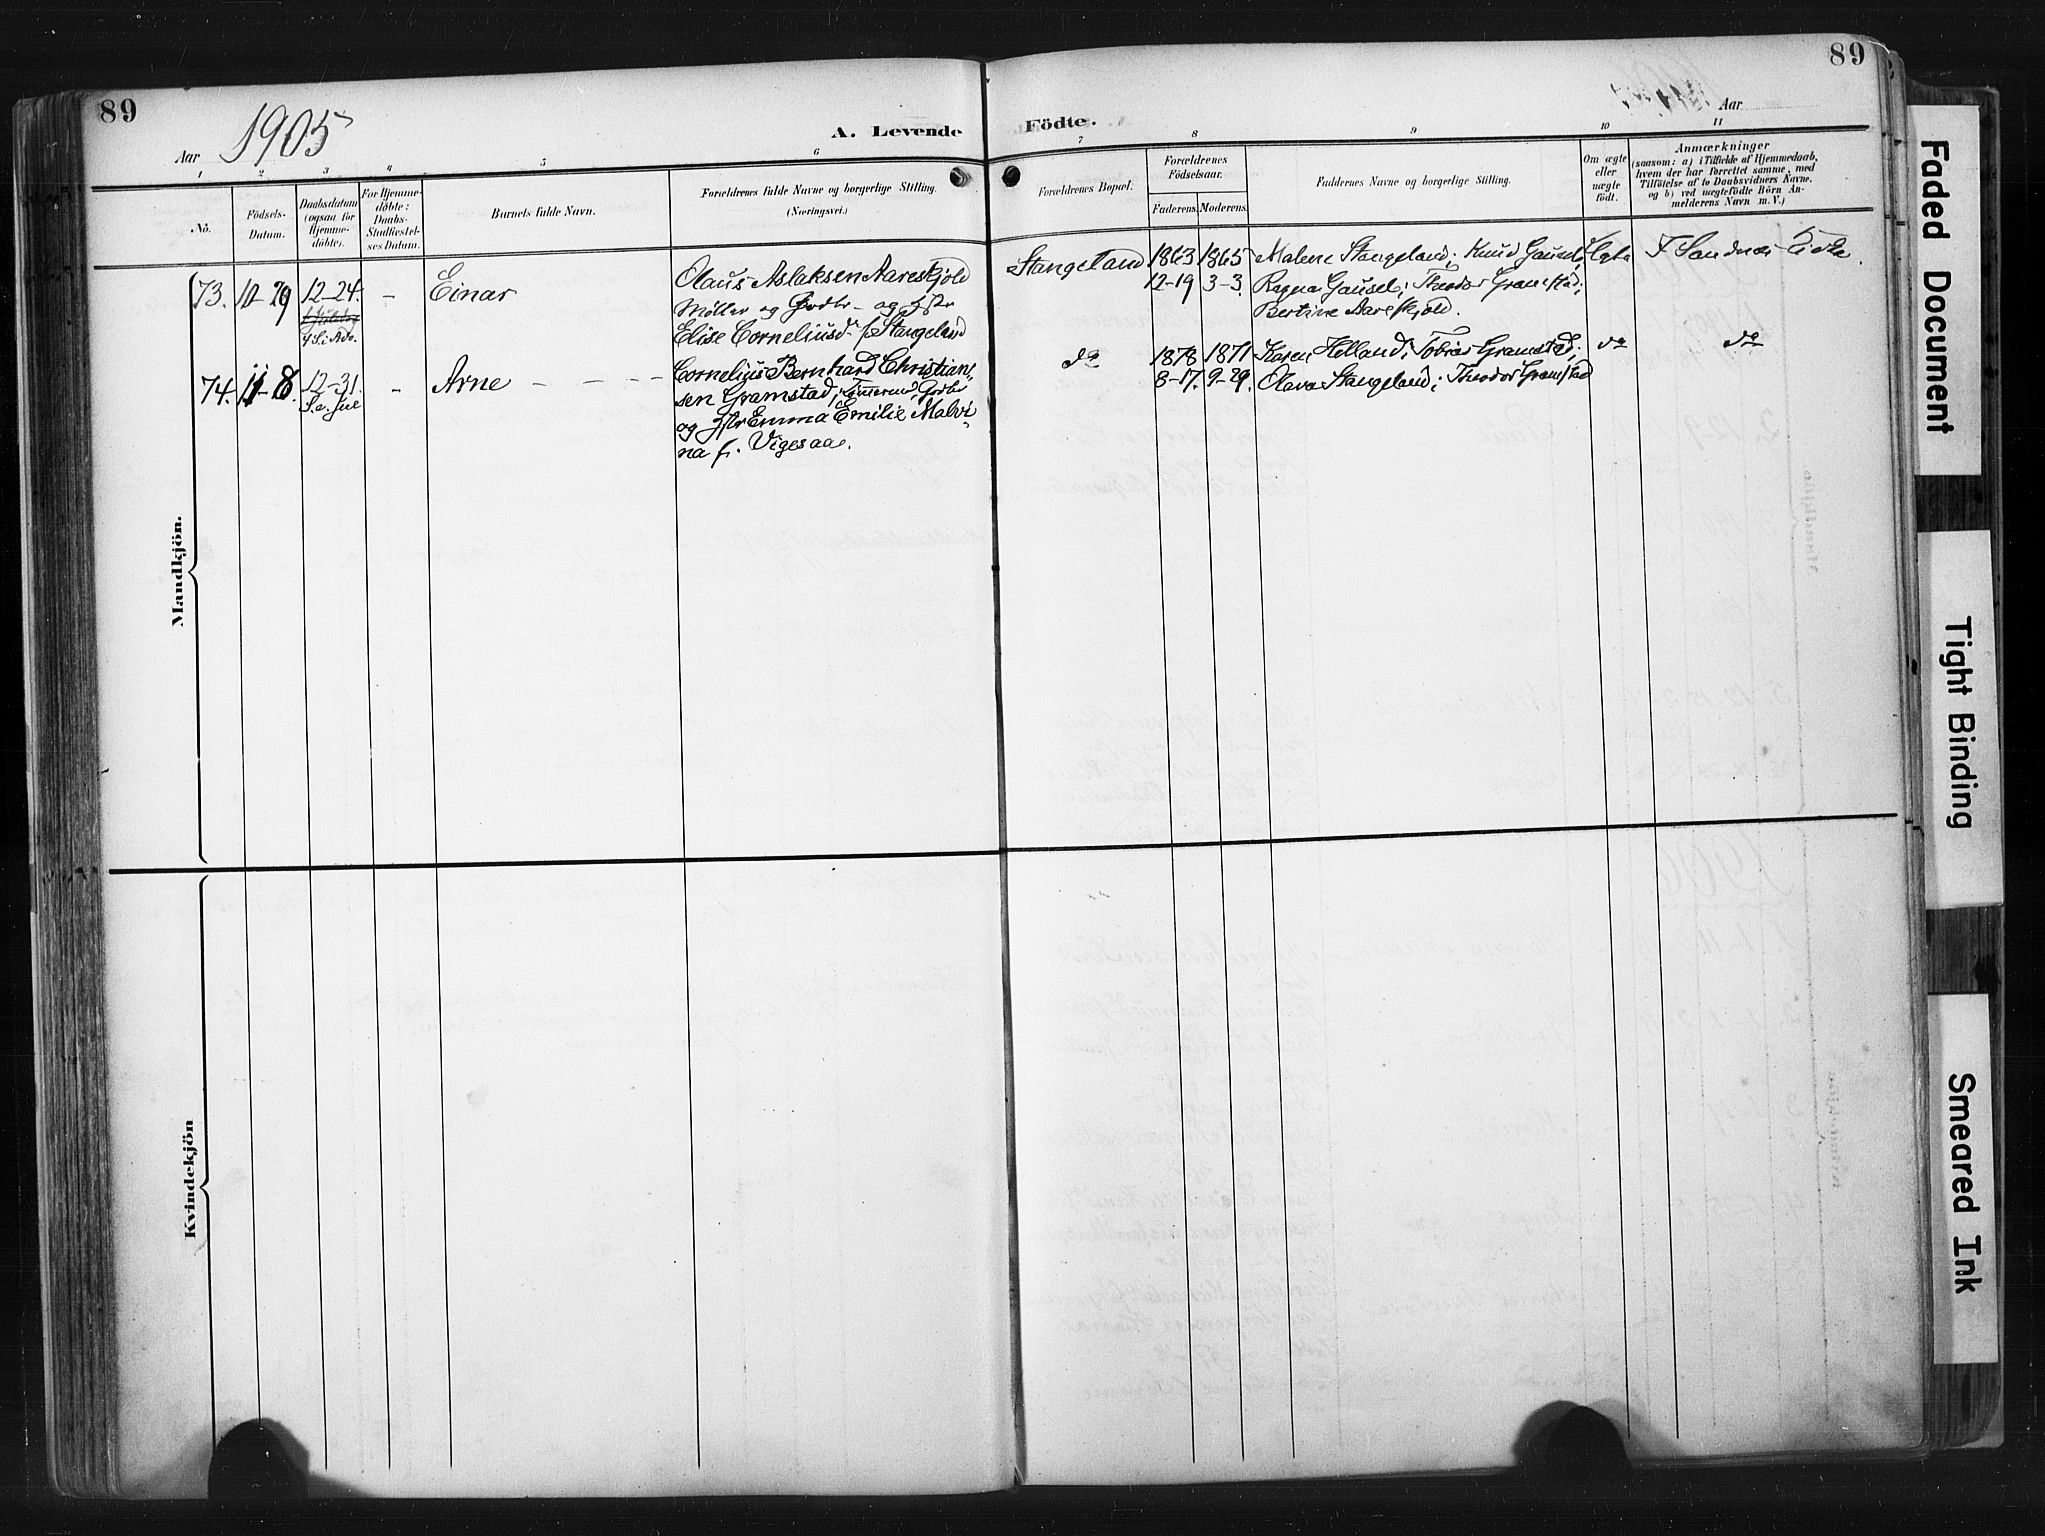 89
Aar 1905
A. Levende
1 2 3 4 5 6
No.
Födsels-
Datum.
Daabsdatum
(ogsaa for
Hjemme-
döbte).
For Hjemme-
döbte:
Daabs-
Stadfæstel-
ses Datum.
Barnets fulde Navn.
Forældrenes fulde Navne og borgerlige Stilling.
(Næringsvei.)
Mandkjön.
73. 10-29 12-24. - Einar
4 S. i Adv.
Olaus Aslaksen Aareskjold
Möller og Grdbr - og Hstr
Elise Corneliusdr f. Stangeland
74. 11-8. 12-31. - Arne - - - -
S. e. Jul
Cornelius Bernhard Christian-
sen Gramstad,
og Hstr Emma Emilie Malvi-
na f. Vigesaa.
Kvindekjön
89
Födte.
Aar
7 8 9 10 11
Forældrenes Bopæl.
Forældrenes
Födselsaar.
Faderens. Moderens.
Faddernes Navne og borgerlige Stilling.
Om ægte
eller
uægte
födt.
Anmærkninger
(saasom: a) i Tilfælde af Hjemmedaab,
hvem der har forrettet samme, med
Tilföielse af to Daabsvidners Navne.
og b) ved uægtefödte Börn An-
melderens Navn m. V.)
Stangeland 1863 1865 Malene Stangeland; Knud Gausel; Ægte F Sandnæs
12-19 3-3. Ragna Gausel; Theodor Gramstad;
Bertine Aareskjold.
do 1878 1871 Karen Helland; Tobias Gramstad; do do
8-17. 9-29. Olava Stangeland; Theodor Gramstad
Faded Document
Tight Binding
Smeared Ink